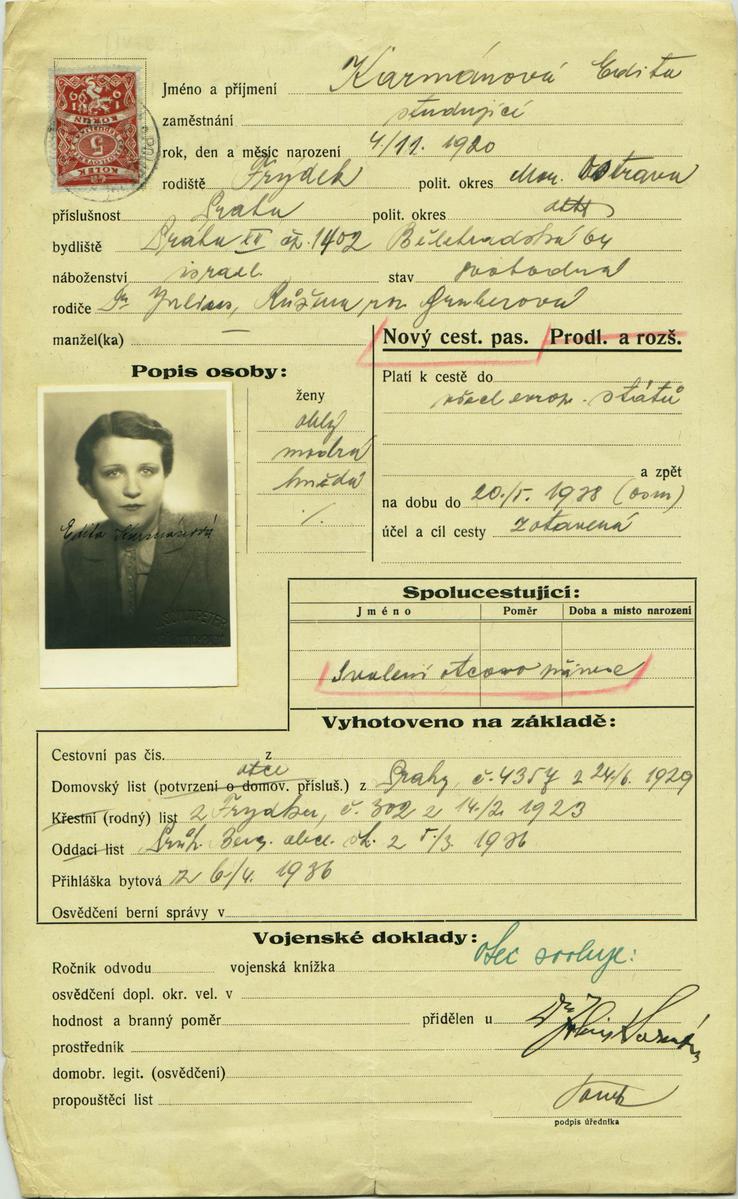 Jméno a příjmení Karmánová Edita
zaměstnání studující
rok, den a měsíc narození 4/11. 1920
rodiště Frýdek polit. okres Mor. Ostrava
příslušnost Praha polit. okres
bydliště Praha XII čp. 1402 Bělehradská 64
náboženství israel. stav svobodná
rodiče Dr Julius, Růžena roz. Gruberová
manžel(ka) —
Nový cest. pas. Prodl. a rozš.
Popis osoby:
Platí k cestě do
všech evrop. států
ženy
oblý
modrá
hnědá
·/.
a zpět
na dobu do 20./5. 1938 (osm)
účel a cíl cesty zotavená
Edita Karmánová
Spolucestující:
Jméno Poměr Doba a místo narození
Svolení otcovo
Vyhotoveno na základě:
Cestovní pas čís. z
otce
Domovský list (potvrzení o domov. přísluš.) z Prahy, č. 4357 z 24/6. 1929
Křestní (rodný) list z Frýdku, č. 302 z 14/2. 1923
Oddací list Průk. obce. z 5/3. 1936
Přihláška bytová z 6/4. 1936
Osvědčení berní správy v
Vojenské doklady:
Otec svoluje:
Ročník odvodu vojenská knížka
osvědčení dopl. okr. vel. v
hodnost a branný poměr přidělen u
prostředník
domobr. legit. (osvědčení)
propouštěcí list
podpis úředníka
5
KOLEK
KORUN